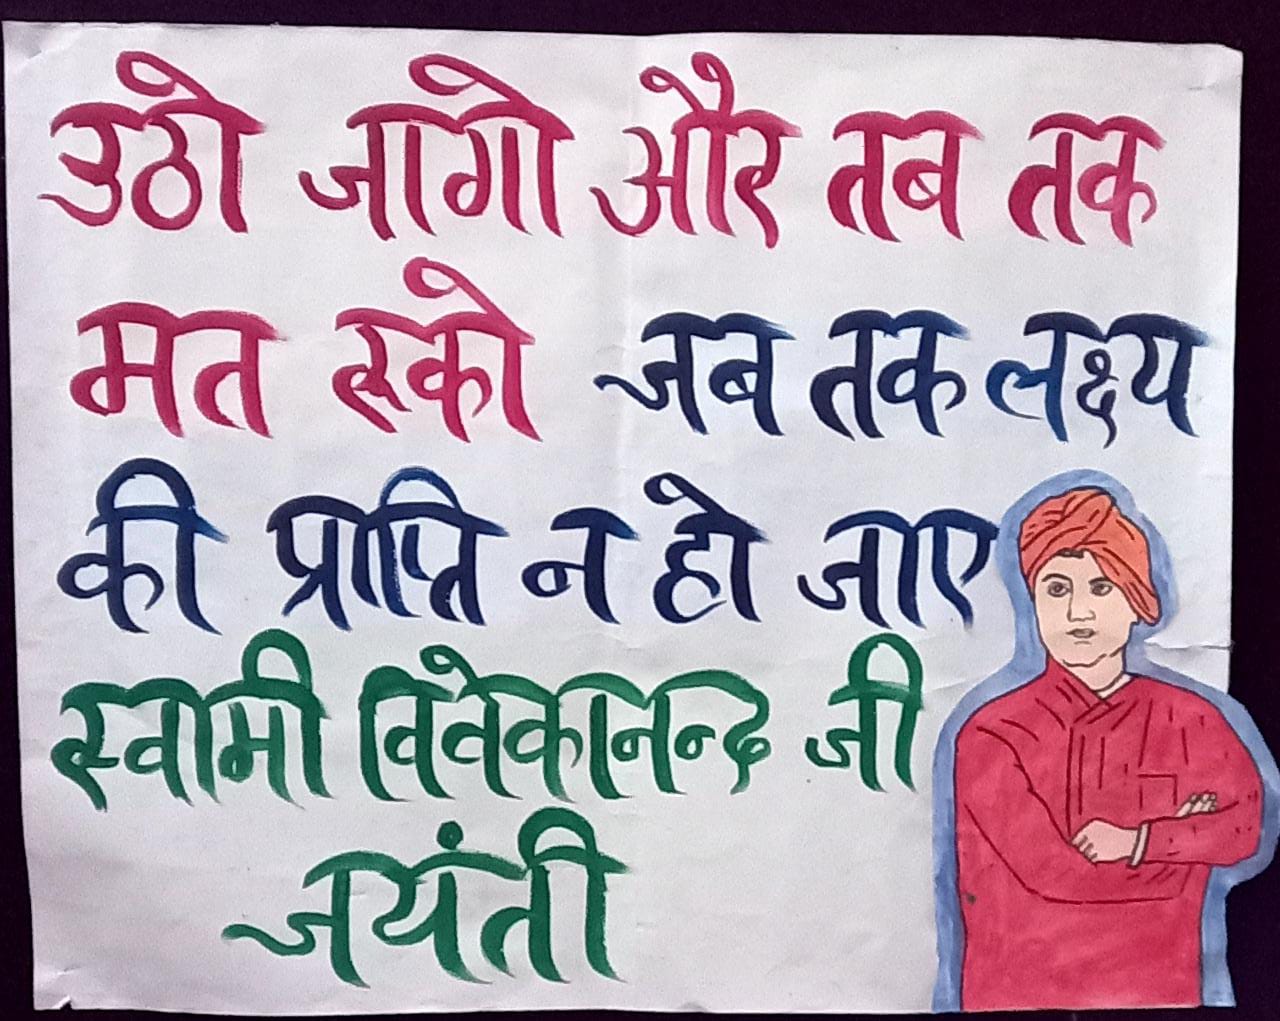 उठो जागो और तब तक
मत रुको जब तक लक्ष्य
की प्राप्ति न हो जाए
स्वामी विवेकानन्द जी
जयंती